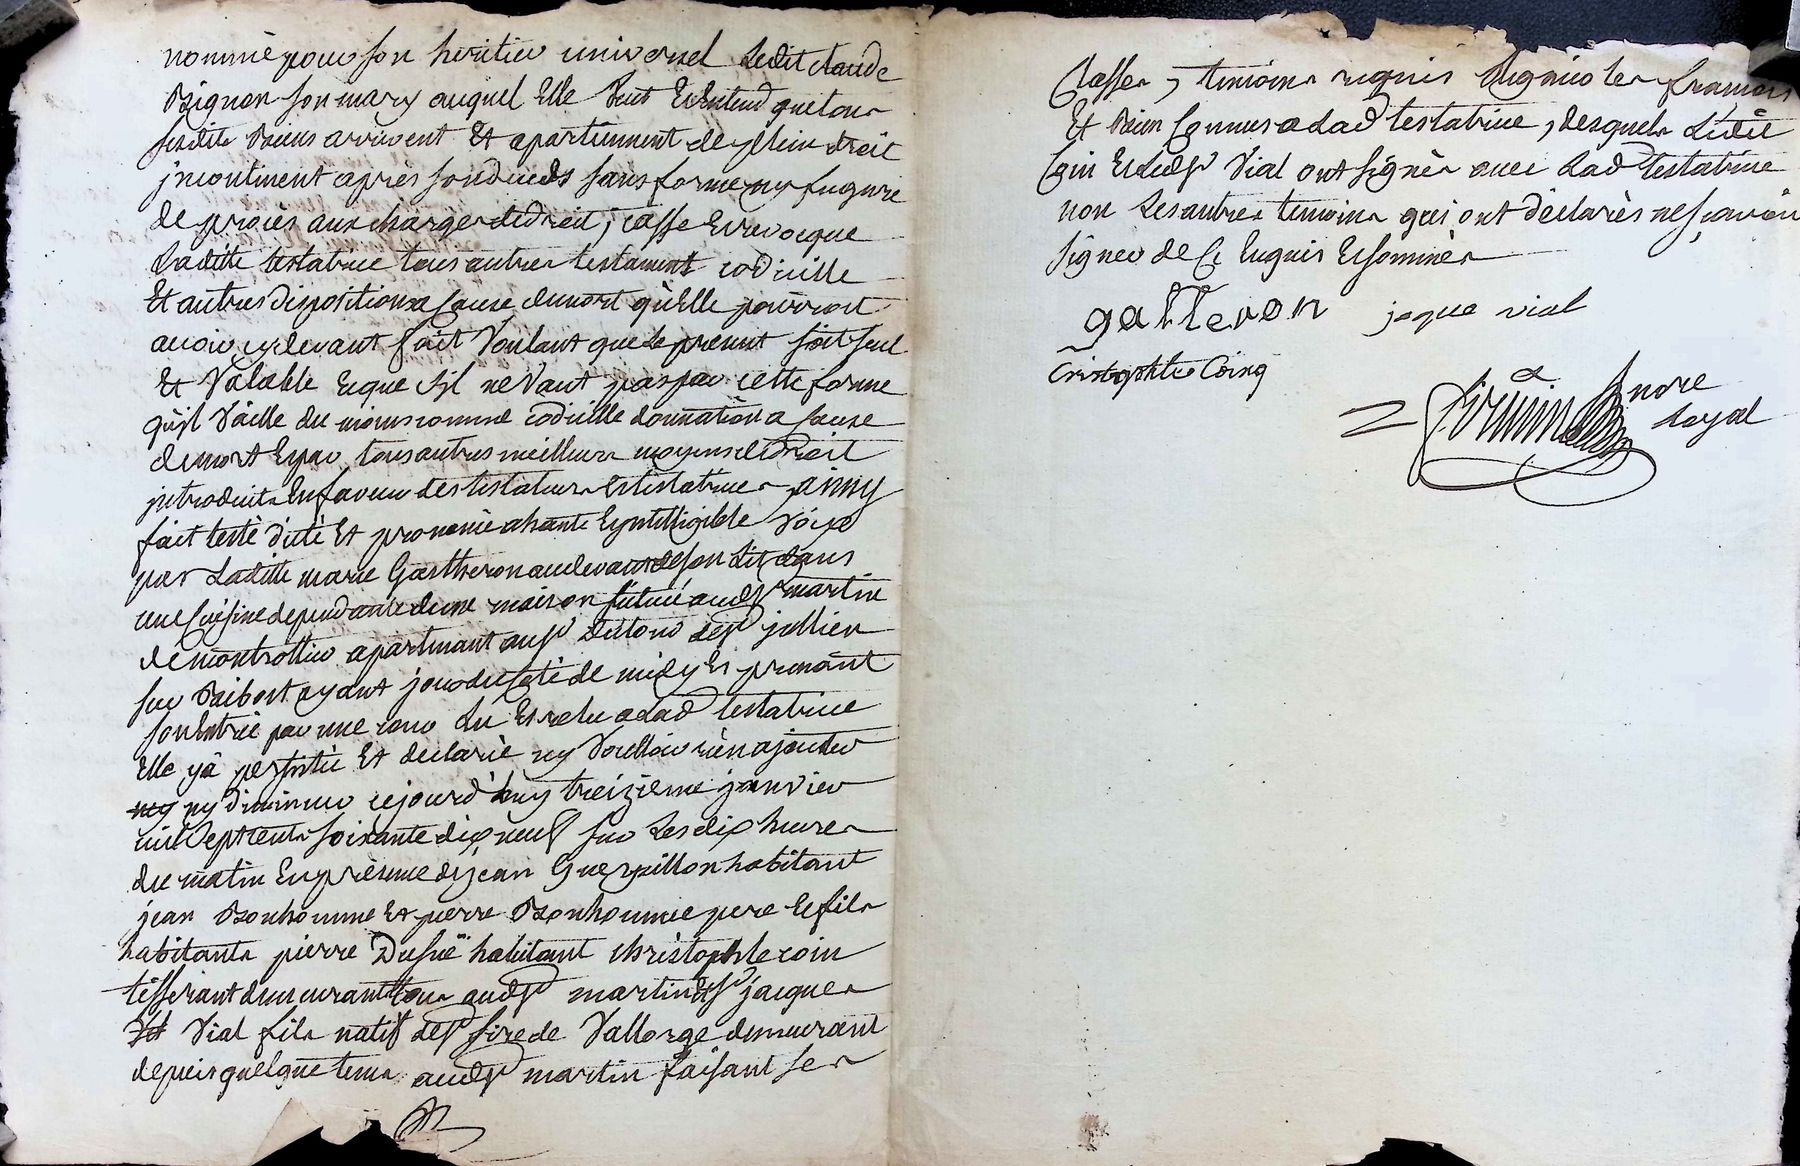 nommé pour son heritier universel Ledit claude
Bignon son mary auquel Elle Veut Et Entend que tous
sesdits Biens arrivent Et apartiennent de plein droit
jncontinent après son deceds sans forme ny fugure
de procès aux charges de droit, casse Et revocque
Ladite testatrice tous autres testament codicille
Et autres dispositions a Cause de mort qu'Elle pourroit
avoir cy devant fait Voulant que Le present soit seul
Et Valable Et que s'jl ne Vaut pas par cette forme
qu'jl Vaille du moins comme codicille donnation a Cause
de mort Et par tous autres meilleurs moyens de droit
jntroduits En faveur des testateurs Et testatrices, ainsy
fait testé dicté Et prononcé a haute Eyntelligible Voix
par Ladite marie Gastheron au devant de son Lit dans
une Cuisine dependante d'une maison située aud St martin
de montrottier apartenant au Sr
sur Baibost ayant jour du Coté de midy Et prenant
son Entrée par une cour Lu Et relu a Lad testatrice
Elle y a persisté Et declaré ny Vouloir rien ajouter
ny ny diminuer cejourd'huy treizieme janvier
mil Sept cents soixante dix neuf sur Les dix heures
du matin En présence de jean Guerpillon habitant
jean Bonhomme Et pierre Bonhomme pere Et fils
habitants pierre Dusué habitant christophle coin
tisserant demeurant tous aud St martin Et Sr jacques
Vial fils natif de St sire de Vallorge demeurant
depuis quelque tems aud St martin faisant ses
Classes, temoins requis Regnicoles francois
Et Bien Connus a Lad testatrice, desquels Ledit
Coin Et Led Sr Vial ont signés avec Lad testatrice
non Les autres temoins qui ont déclarés ne sçavoir
signer de Ce Enquis Et sommés
gatteron jaque vial
Cristophle Coing
Nore
Royal